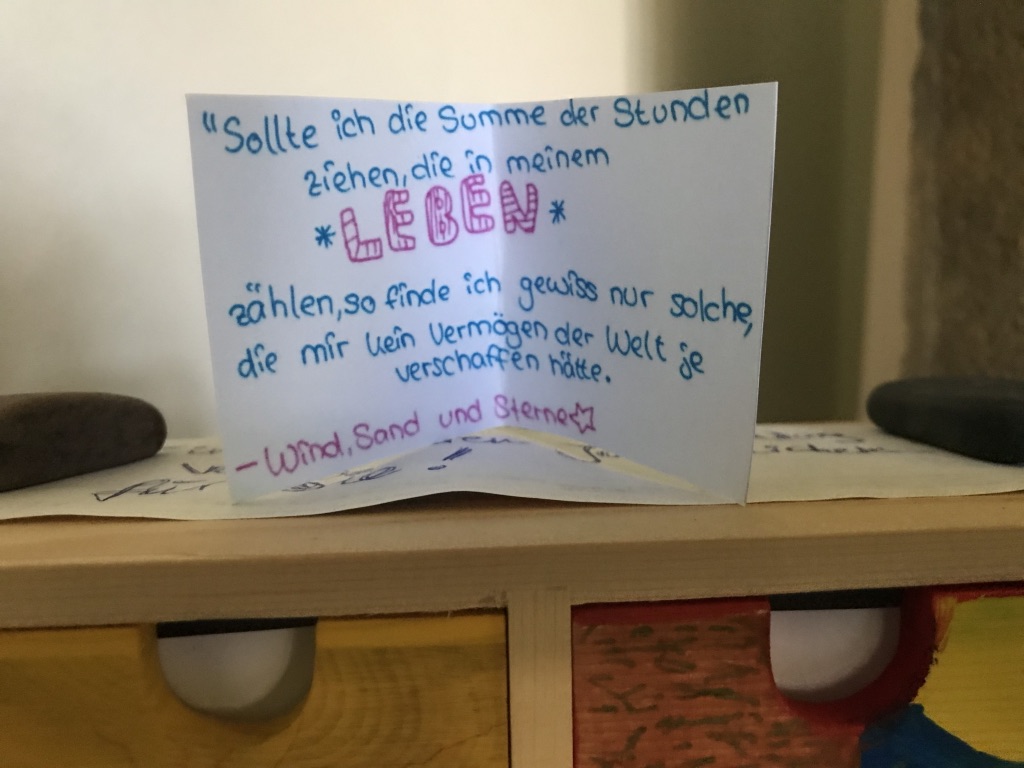 "Sollte ich die Summe der Stunden
ziehen, die in meinem
*LEBEN*
zählen, so finde ich gewiss nur solche,
die mir kein Vermögen der Welt je
verschaffen hätte.
- Wind, Sand und Sterne☆
für